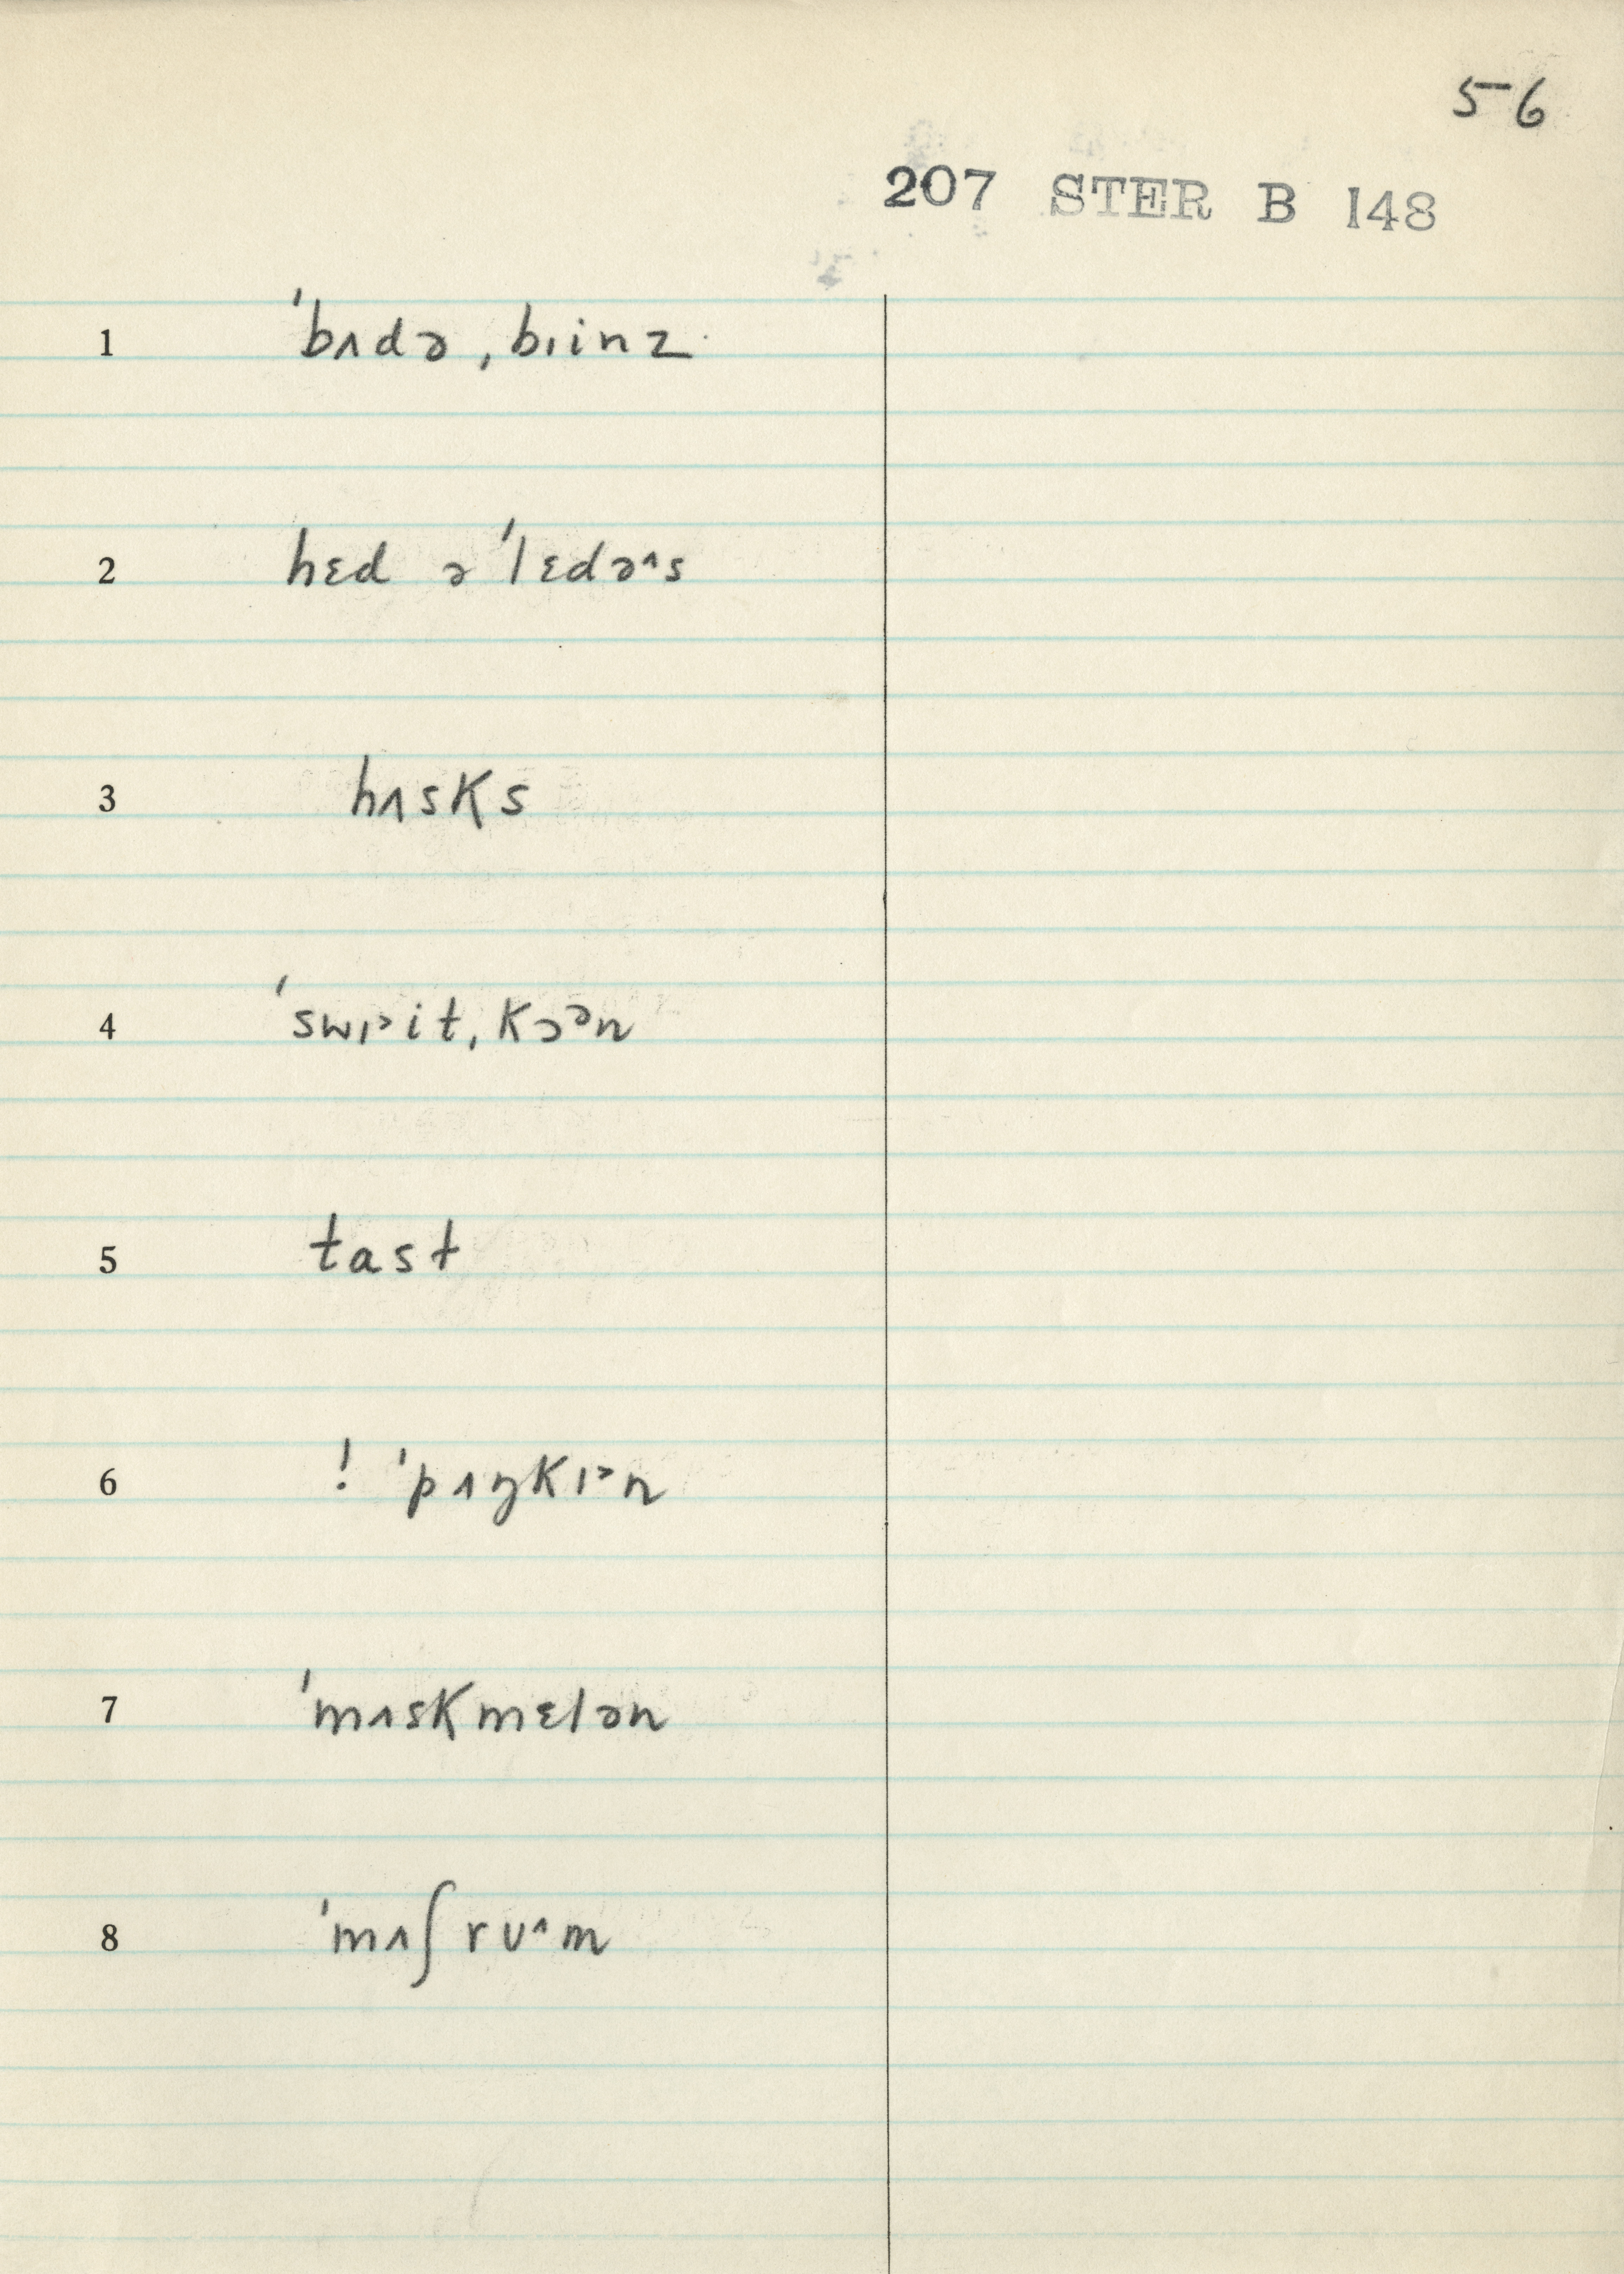 56
207 STER B 148
1 ˈbʌdə ˌbɪinz
2 hɛd ə ˈlɛdə^s
3 hʌsks
4 ˈswɪ˃it ˌkɔᵊn
5 tast
6 ! ˈpʌŋkɪ˃n
7 ˈmʌskmɛlən
8 ˈmʌʃrʊ^m